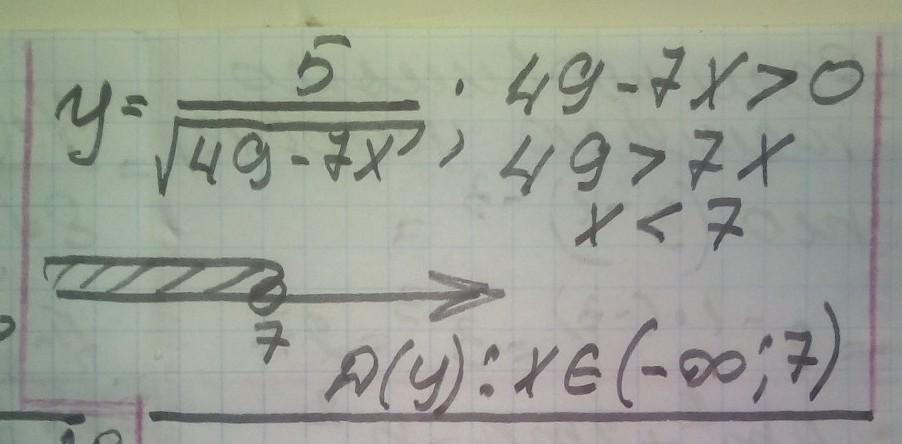 y = 5/√(49-7x) ; 49-7x>0
49>7x
x<7
7
D(y): x∈(-∞;7)